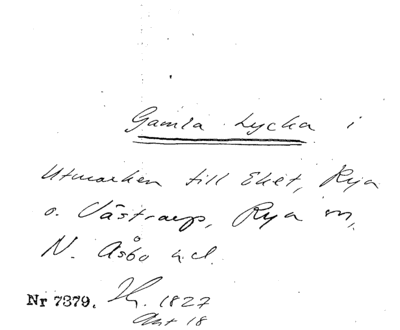 Gamla Lycka i
Utmarken till Eket, Rya
o. Västraarp, Rya sn,
N. Åsbo hd.
Nr 7379. 1827
Akt 18